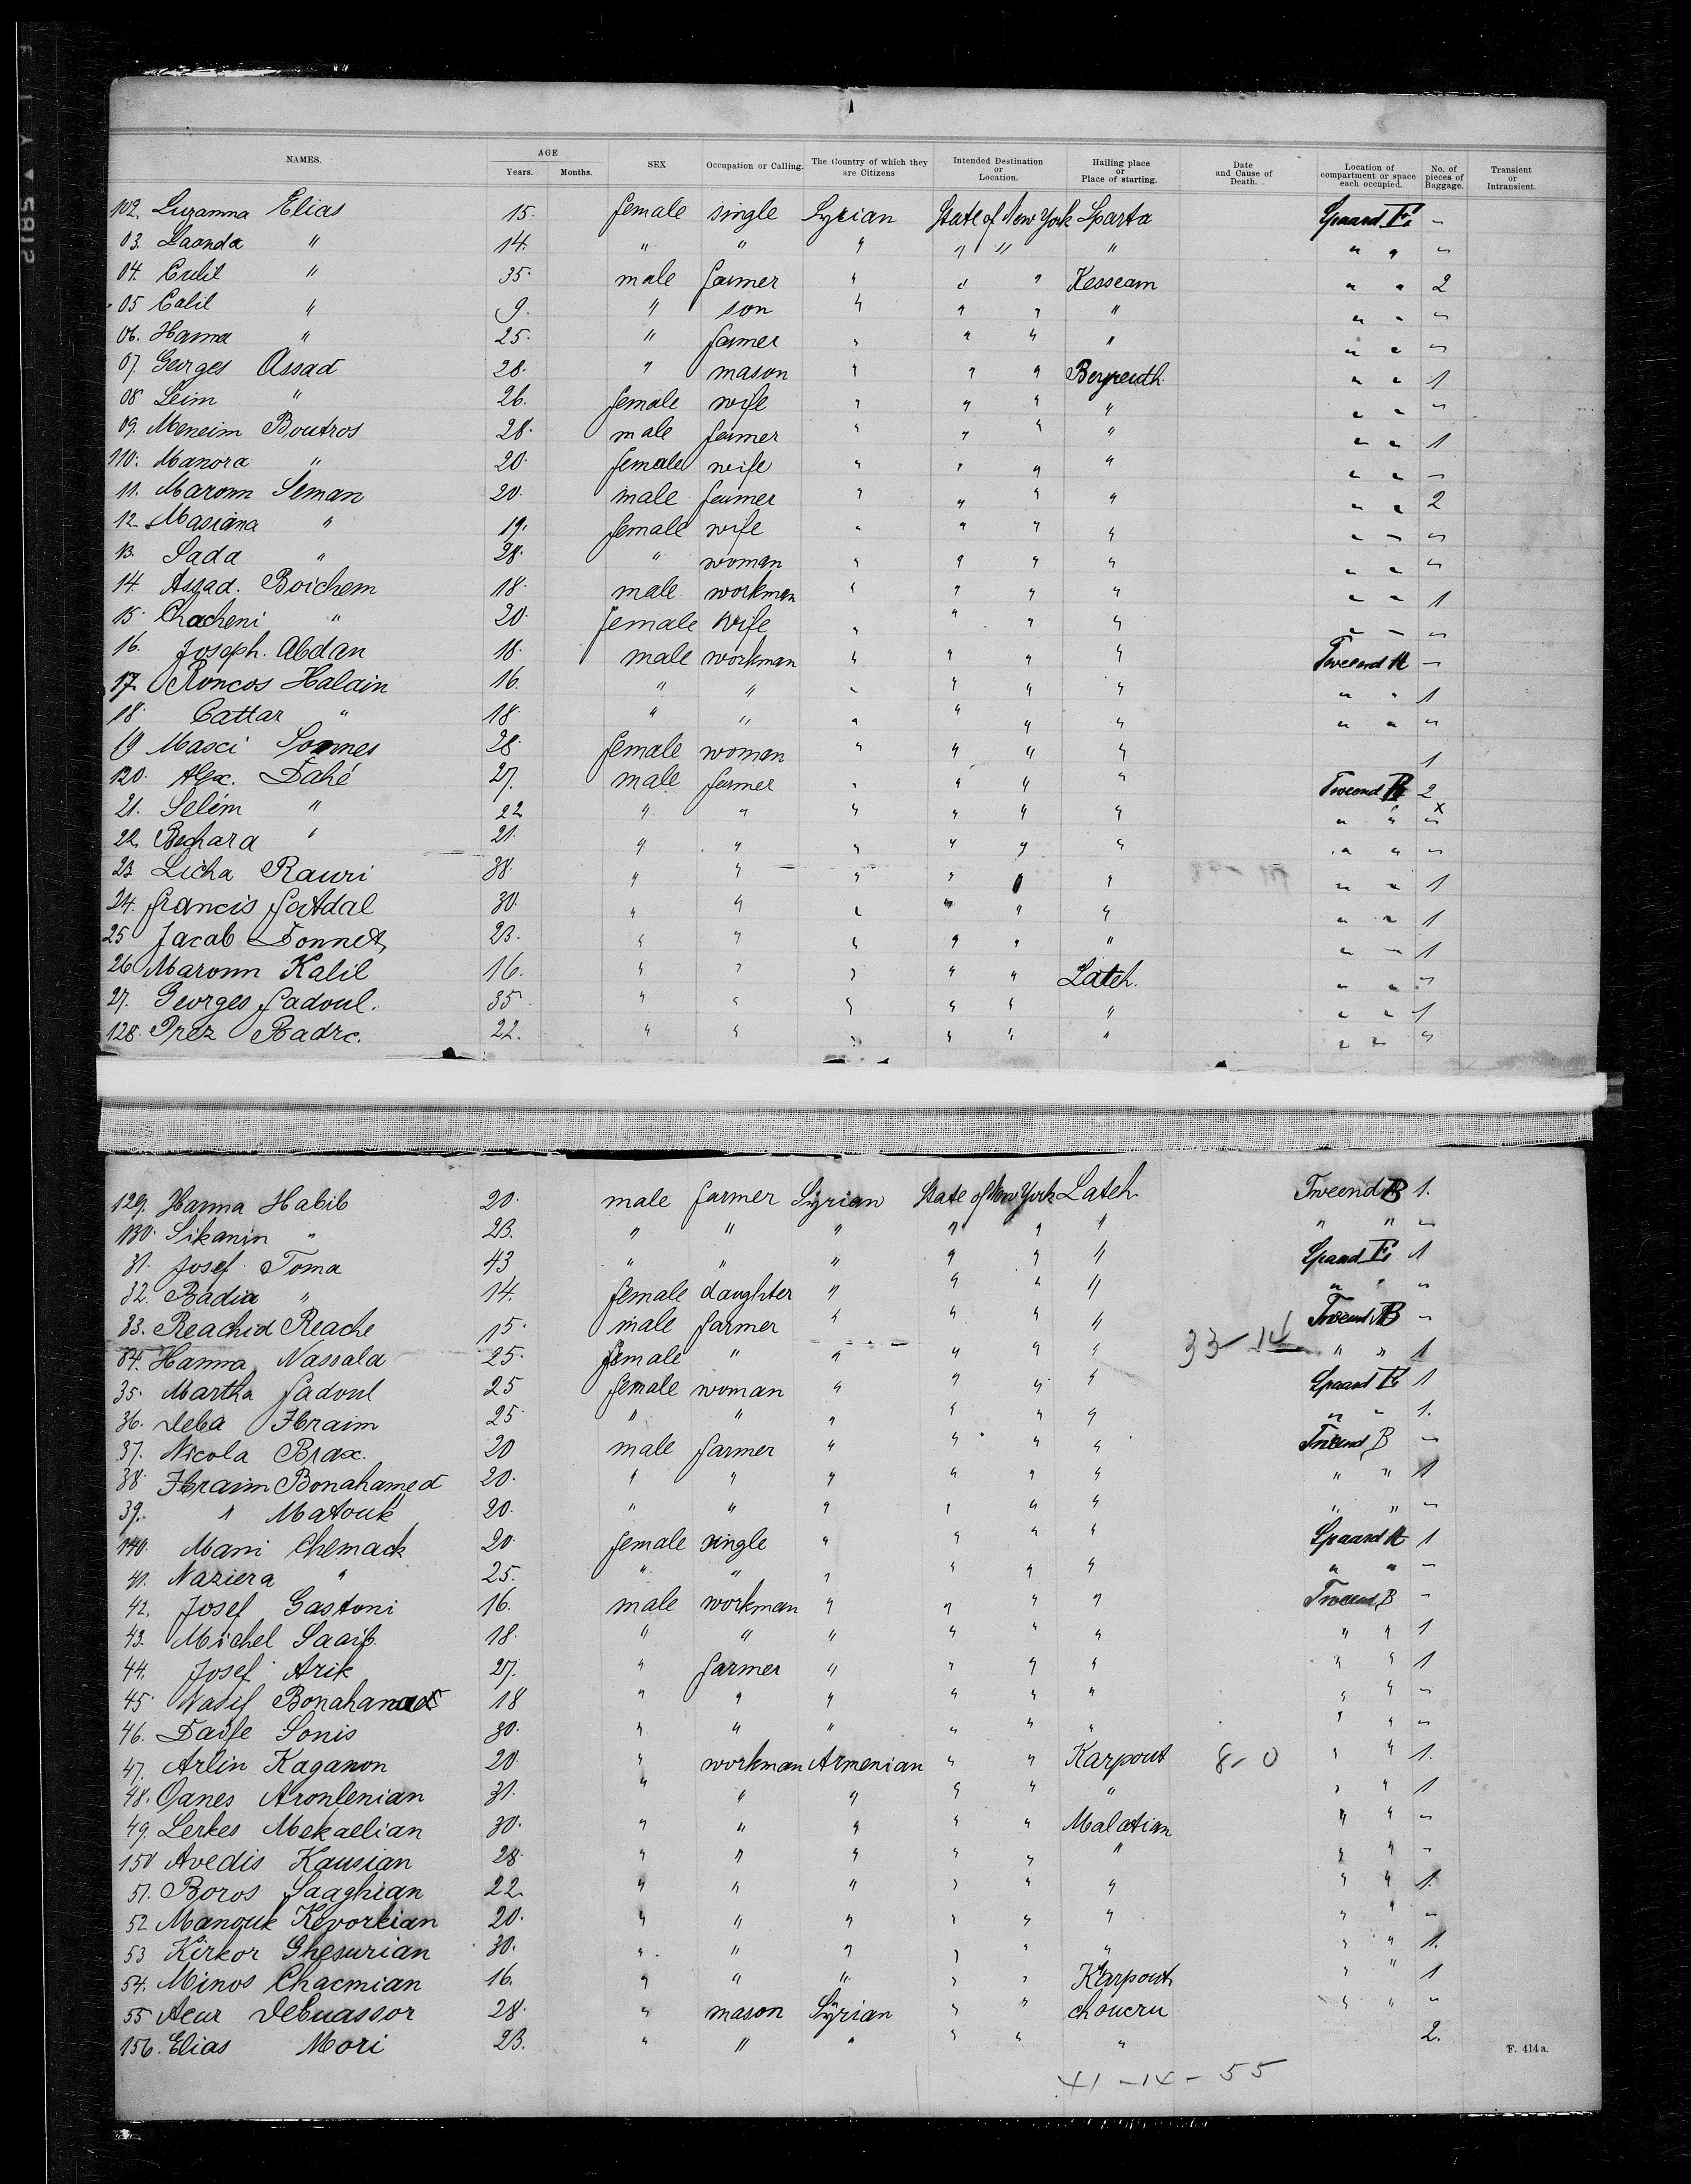 NAMES. AGE Years. Months. SEX Occupation or Calling. The Country of which they are Citizens Intended Destination or Location. Hailing place or Place of starting. Date and Cause of Death. Location of compartment or space each occupied. No. of pieces of Baggage. Transient or Intransient.
102. Luzanna Elias 15. female single Syrian State of New York Sparta Spaand E. "
03. Laonda " 14. " " " " " " " " "
04. Culil " 35. male farmer " " " Kesseam " " 2
05 Calil " 9. " son " " " " " " "
06. Hanna " 25. " farmer " " " " " " "
07. Georges Assad 28. " mason " " " Beyreuth " " 1
08 Leim " 26. female wife " " " " " " "
09. Meneim Boutros 28. male farmer " " " " " " 1
110. Manora " 20. female wife " " " " " " "
11. Maronn Seman 20. male farmer " " " " " " 2
12. Masiana " 19. female wife " " " " " " "
13. Sada " 28. " woman " " " " " " "
14. Assad. Boichem 18. male workman " " " " " " 1
15. Chacheni " 20. female wife " " " " " " "
16. Joseph. Abdan 18. male workman " " " " Tweend A "
17. Roncos Halain 16. " " " " " " " " 1
18. Cattar " 18. " " " " " " " " "
19 Masci Sonnes 28. female woman " " " " 1
120. Alex. Dahé 27. male farmer " " " " Tweend B 2
21. Selém " 22 " " " " " " " " x "
22. Bechara " 21. " " " " " " " " "
23 Licha Rauri 38. " " " " " " " " 1
24. Francis Fatdal 30. " " " " " " " " 1
25 Jacob Donnet 23. " " " " " " " " 1
26 Maronn Kalil 16. " " " " " Lateh. " " "
27. Georges Fadoul. 35 " " " " " " " " 1
128. Prez Badrc. 22. " " " " " " " " "
129. Hanna Habib 20. male farmer Syrian State of New York Lateh Tweend B 1.
130. Sikanin " 23. " " " " " " " " "
31. Josef Toma 43 " " " " " " Spaand E. 1
32. Badia " 14. female daughter " " " " " " "
33. Reachid Reache 15. male farmer " " " " Tweend B "
34. Hanna Nassala 25. female " " " " " 33-14 " " 1
35. Martha Fadoul 25 female woman " " " " Spaand E 1
36. Deba Ibraim 25. " " " " " " " " 1.
37. Nicola Brax. 20 male farmer " " " " Tweend B "
38 Ibraim Bonahamed 20. " " " " " " " " 1
39. " Matouk 20. " " " " " " " " "
140. Mani Chemack 20. female single " " " " Spaand A 1
41. Naziera " 25. " " " " " " " " "
42. Josef Gastoni 16. male workman " " " " Tweend B "
43. Michel Saaif 18. " " " " " " " " 1
44. Josef Arik 27. " farmer " " " " " " 1
45 Nasif Bonahamed 18 " " " " " " " " "
46. Daife Sonis 30. " " " " " " " " "
47. Arlin Kaganon 20. " workman Armenian " " Karpout 8-0 " " 1.
48. Oanes Aronlenian 31. " " " " " " " " 1
49. Lerkes Mekaelian 30. " " " " " Malatian " " "
150 Avedis Kausian 28. " " " " " " " " "
51. Boros Saaghian 22. " " " " " " " " 1.
52 Manouk Kevorkian 20. " " " " " " " " "
53 Kirkor Ghesurian 30. " " " " " " " " 1.
54. Minos Chacmian 16. " " " " " Karpout " " 1
55 Acur Debuassor 28. " mason Syrian " " choucru " " "
156. Elias Mori 23. " " " " " " 2.
F. 414a.
41-14-55